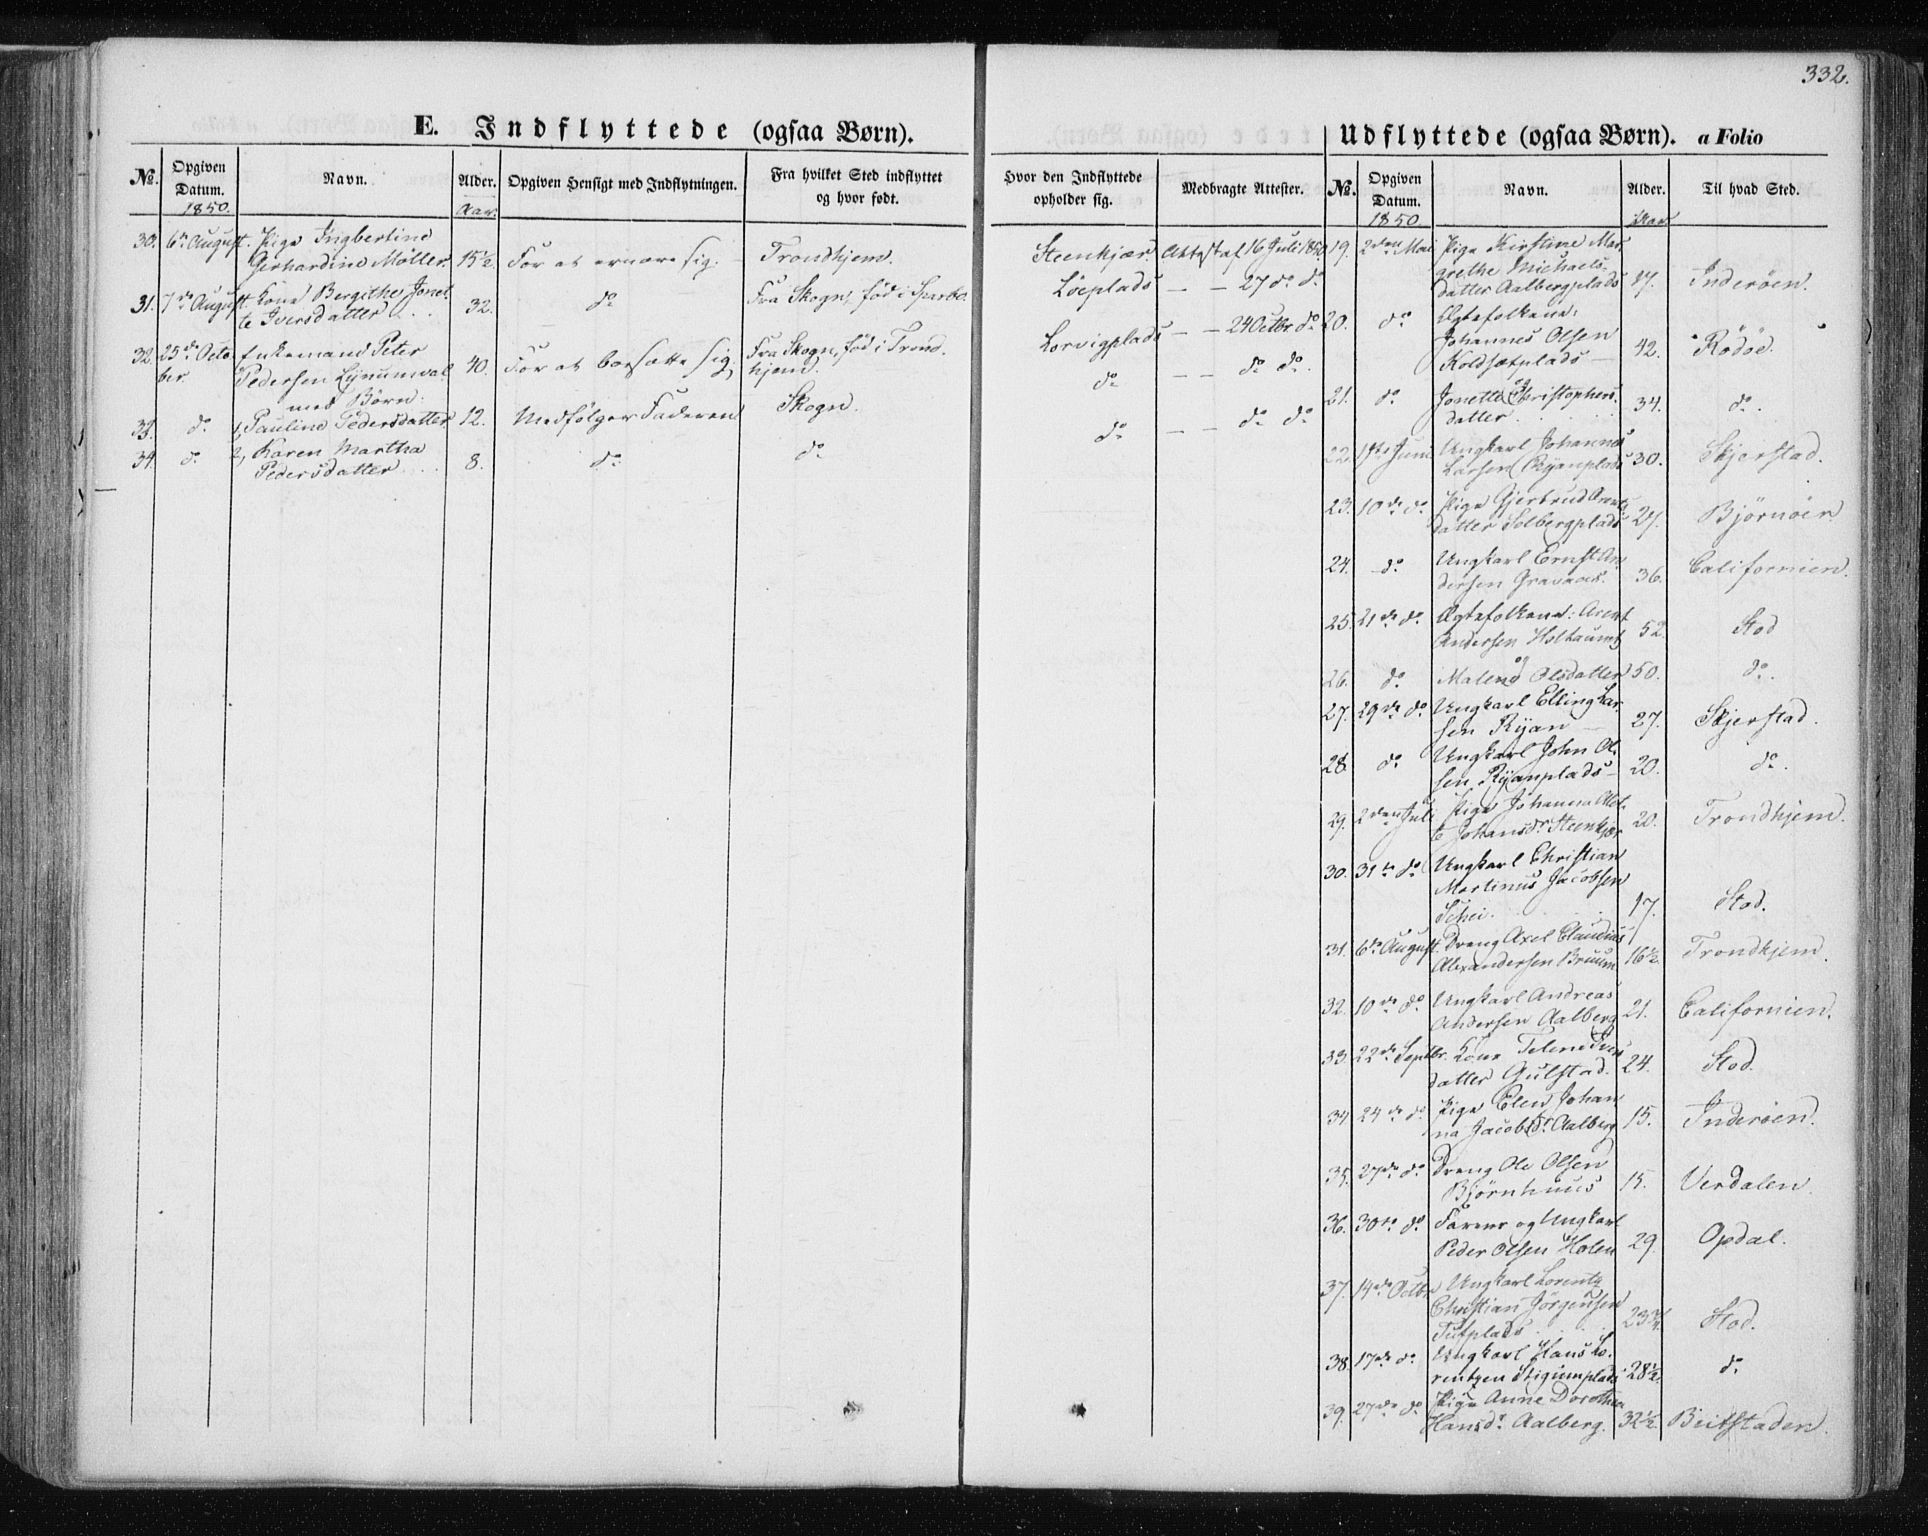 332.
E. Indflyttede (ogsaa Børn).
No.
Opgiven
Datum.
1850.
Navn.
Alder.
Aar.
Opgiven Hensigt med Indflytningen.
Fra hvilket Sted indflyttet
og hvor født.
Hvor den Indflyttede
opholder sig.
Medbragte Attester.
30. 6te August. Pige Ingbertine
Gerhardine Möller. 15½ For at ernære sig. Trondhjem. Steenkjær. Attest af 16 Juli 1850
31. 7de August. Kone Bergithe Jonet
te Iversdatter 32. do Fra Skogn, föd i Sparbo. Löeplads — — 27 do do
32. 25de Octo
ber. Enkemand Peter
Pedersen Lynumval
med Børn: 40. For at bosætte sig, Fra Skogn, föd i Trond-
hjem. Lorvigplads — — 24 Octbr do
33. do 1, Pauline Pedersdatter 12. Medfölger Faderen Skogn. do — — do do.
34. do 2, Karen Martha
Pedersdatter 8. do do do — — do do
Udflyttede (ogsaa Børn). a Folio
No.
Opgiven
Datum.
1850
Navn.
Alder.
Aar
Til hvad Sted.
19. 2den Mai Pige Kirstine Mar
grethe Michaels-
datter Aalbergplads 17. Inderöen.
20. do Egtefolkene:
Johannes Olsen
Koldsætplads — 42. Rödöe.
21. do og
Jonetta Christophers-
datter 34. do.
22. 1ste Juni Ungkarl Johannes
Larsen Ryanplads 30. Skjerstad.
23. 10de do Pige Gjertrud Arents
datter Solbergplads 27. Björnöer
24. do Ungkarl Ernst An
dersen Gravaas. 36. Californien.
25. 21de do Egtefolkene: Arent
Andersen 52. Stod
26. do og
Malene Olsdatter 50. do.
27. 29de do Ungkarl Elling Lar
sen Ryan — 27. Skjerstad.
28. do Ungkarl John Ol-
sen Ryanplads — 20. do.
29. 2den Juli Pige Johanna Alet-
te Johansdr Steenkjær 20. Trondhjem.
30. 31te do Ungkarl Christian
Martinus Jacobsen
Schei. 17. Stod.
31. 6te August. Dreng Axel Claudius
Alexandersen Bruum 16½. Trondhjem.
32. 10de do Ungkarl Andreas
Andersen Aalberg 21. Californien.
33. 22de Septbr. Kone Telene Iver
datter Gulstad. 24. Stod.
34. 24de do Pige Elen Johan
na Jacobsdr Aalberg 15. Inderöen.
35. 27de do Dreng Ole Olsen
Björnhuus 15. Verdalen.
36. 30te do Farver og Ungkarl
Peder Olsen Holen 29. Opdal.
37. 14de Octbr Ungkarl Lorentz
Christian Jörgensen
Tufplads 23¾. Stod.
38. 17de do Ungkarl Hans Lo-
rentzen Stigumplads 28½. do
39. 27de do Pige Anne Dorothea
Hansdr Aalberg. 32½ Beitstaden.